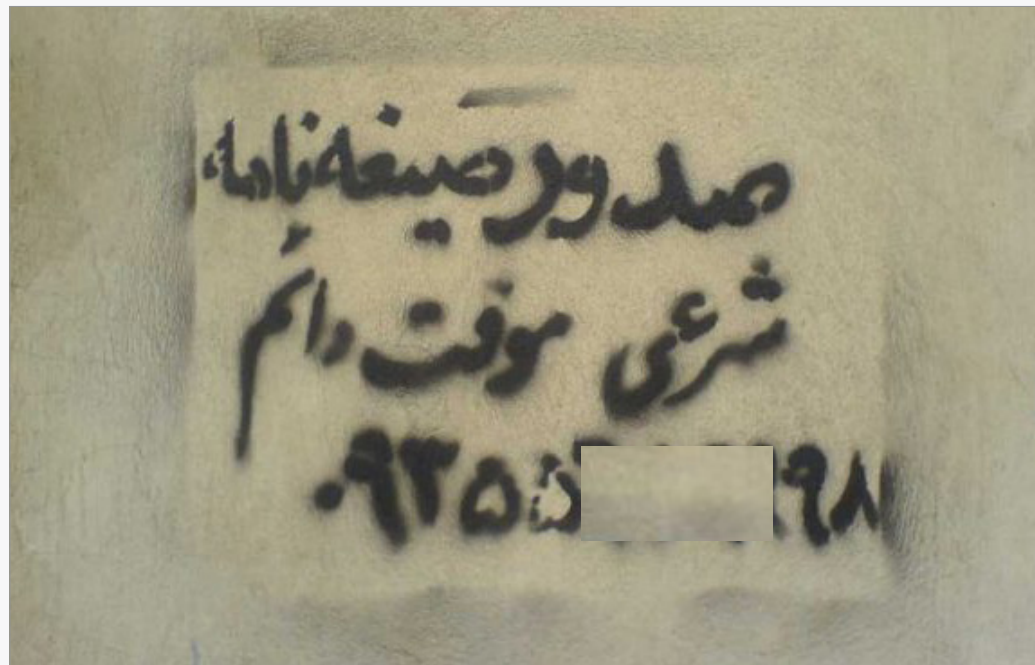 صدور صیغه نامه
شرعی موقت دائم
۰۹۳۵۵ ۹۸